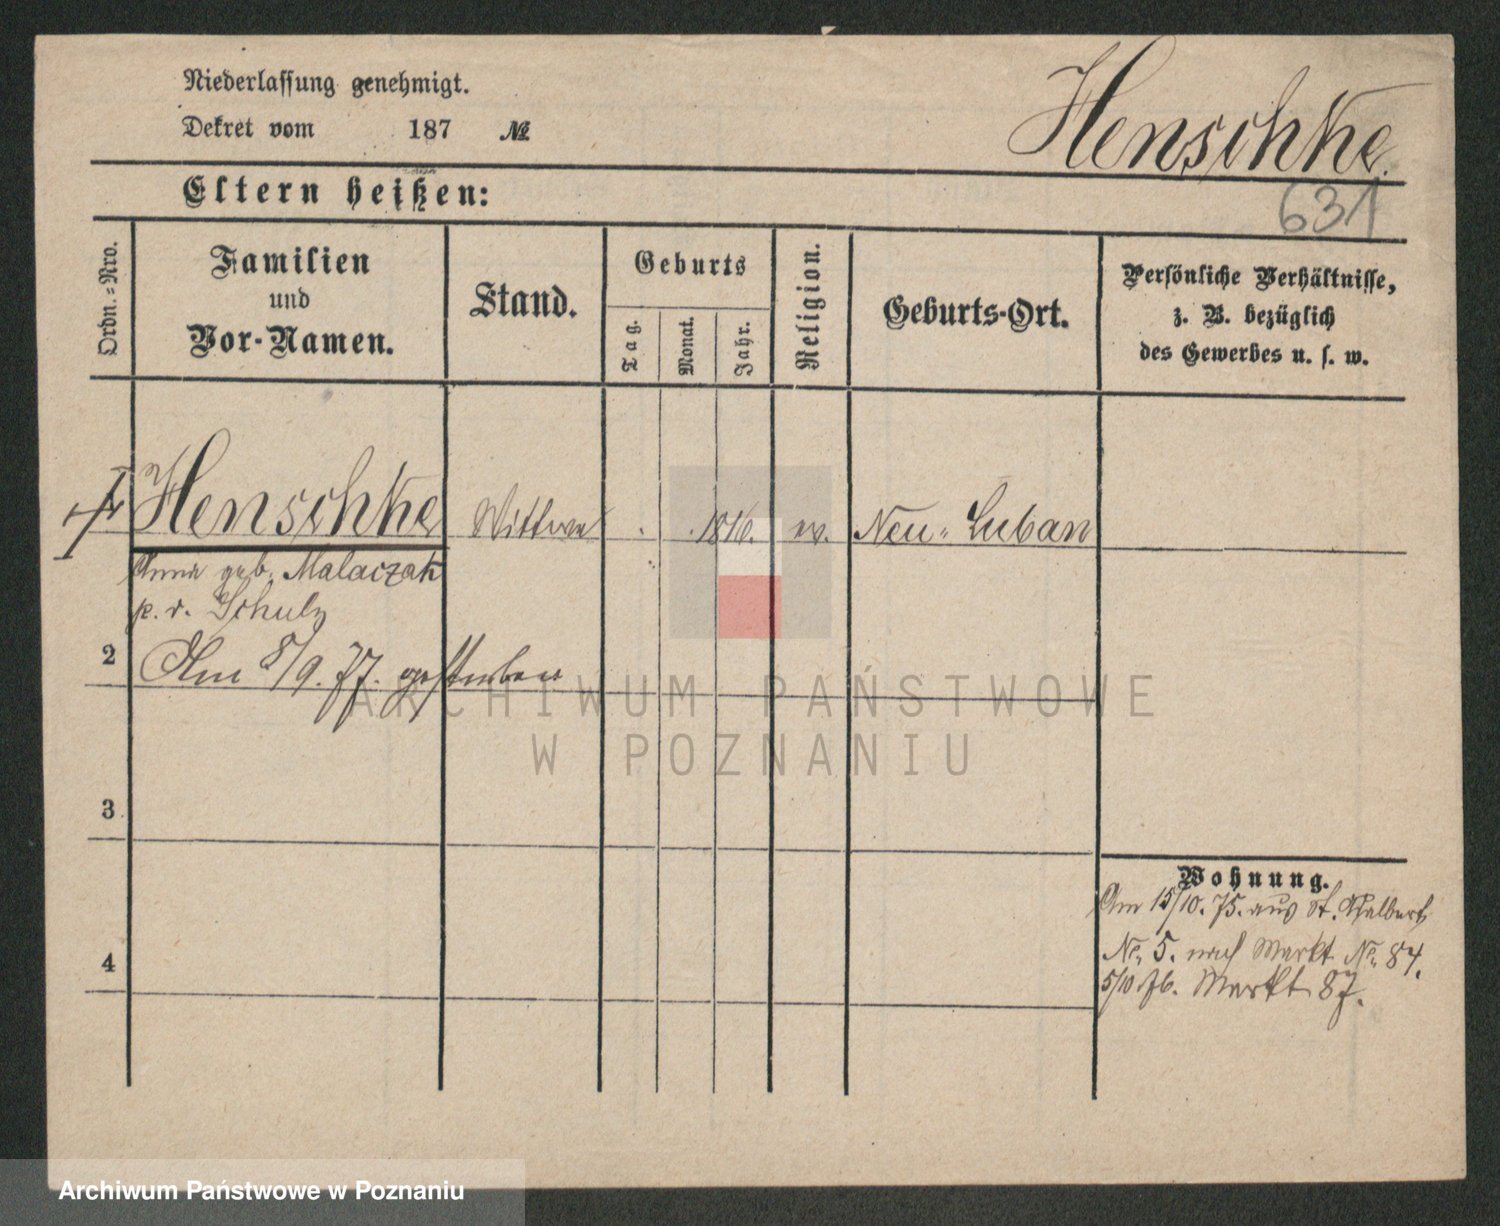 Niederlassung genehmigt.
Dekret vom 187 №
Henschke.
631
Eltern heißen:
Ordn.=Nro.
Familien
und
Vor-Namen.
Stand.
Geburts
Tag.
Monat.
Jahr.
Religion.
Geburts-Ort.
Persönliche Verhältnisse,
z. B. bezüglich
des Gewerbes u. s. w.
Henschke Wittwe 1816. ev. Neu-Luban
Anna geb. Malaczak
p. v. Schulz
2 Am 8/9. 77. gestorben
3
4
Wohnung.
Am 15/10. 75. aus St. Adalbert
No. 5. nach Markt No. 84.
5/10 76. Markt 87.
ARCHIWUM PAŃSTWOWE
W POZNANIU
Archiwum Państwowe w Poznaniu